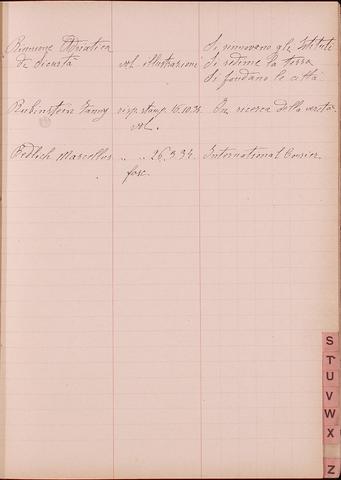 Riunione Adriatica Si rinnovano gli Istituti
di Sicurtà vol. illustrazioni Si redime la terra
Si fondano le città
Rubinstein Fanny risp. stamp. 16.10.28 In ricerca della verità
vol.
Redlich Marcellus " " 26.3.34. International Courier
fasc.
S
T
U
V
W
X
Z